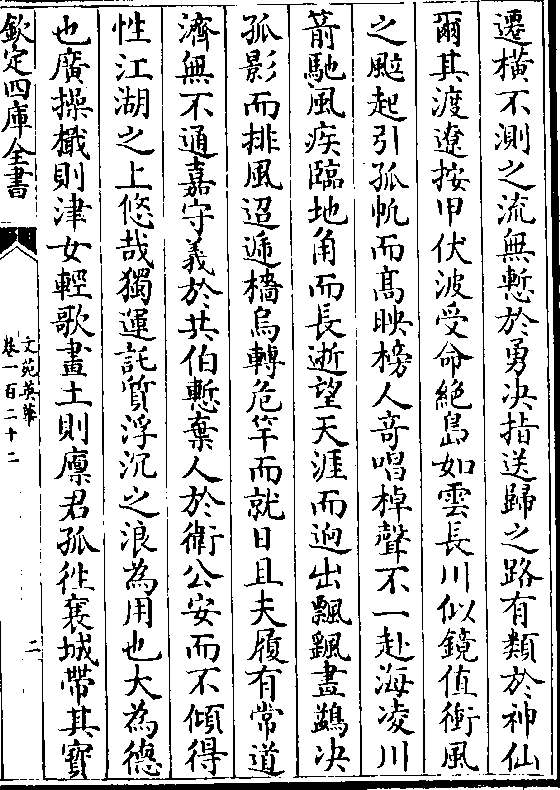 遷橫不測之流無慙於勇决指送歸之路有類於神仙
爾其渡遼按甲伏波受命絶島如雲長川似鏡值衝風
之颭起引孤帆而髙映榜人竒唱棹聲不一赴海凌川
箭馳風疾臨地角而長逝望天涯而逈出飄飄畫鷁决
孤影而排風迢遞檣烏轉危竿而就日且夫履有常道
濟無不通嘉守義於共伯慙棄人於衛公安而不傾得
性江湖之上悠哉獨運託質浮沉之浪為用也大為德
也廣操檝則津女輕歌畫土則廩君孤徃襄城帶其寳
欽定四庫全書
文苑英華
卷一百二十二
二